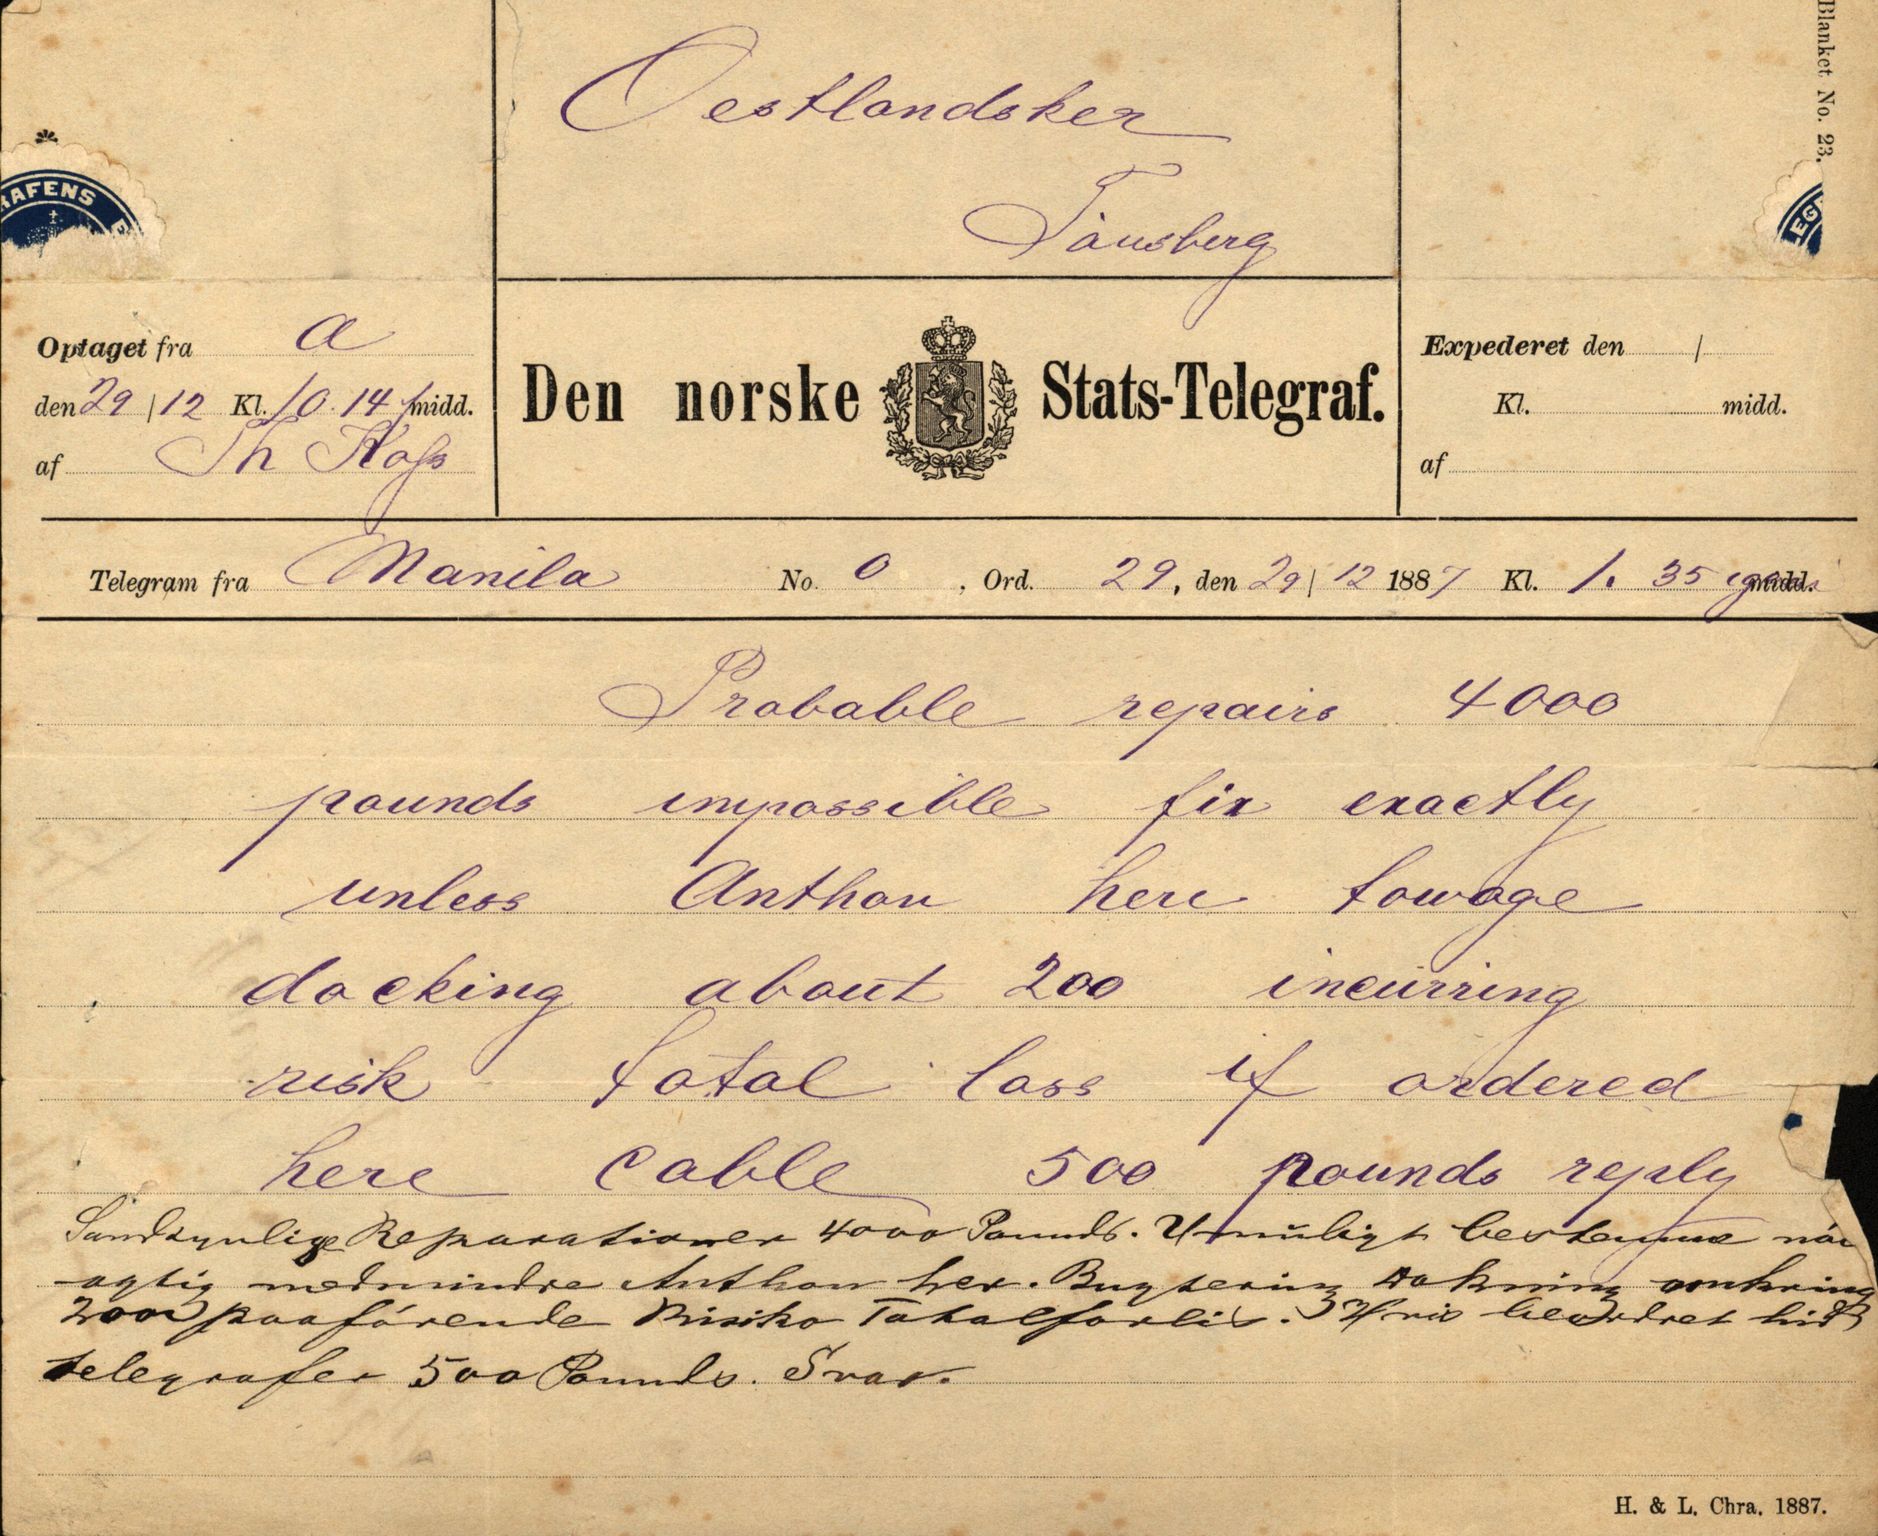 Blanket No. 23.
Oestlandsker
Tánsberg
RAFENS
EG
Optaget fra a
den 29/12 Kl. 10.14 midd.
af Th
Den norske Stats-Telegraf.
Expederet den /
Kl. midd.
af
Telegram fra Manila No. 0, Ord. 29, den 29/12 1887 Kl. 1. 35 midd.
Probable repairs 4000
pounds impossible fix exactly
unless Anthon here towage
docking about 200 incurring
risk total loss if ordered
here cable 500 pounds reply
Sandsynlige Reparationer 4000 Pounds. Umuligt bestemme nöi
agtig medmindre Anthon her. Bugsering Dokning omkring
200 paaförende Risiko Totalforlis. Hvis beordret hid
telegrafer 500 Pounds. Svar.
H. & L. Chra. 1887.